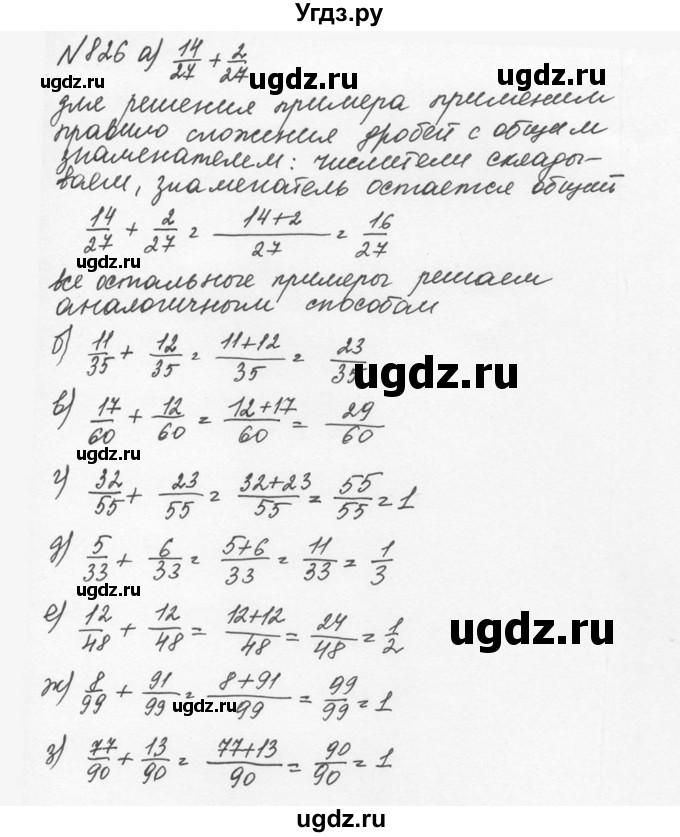 Угдз.ру
№826 а) 14/27 + 2/27
ugdz.ru ugdz.ru
для решения примера применим
правило сложения дробей с общим
знаменателем: числители склады-
ваем, знаменатель остается общий
14/27 + 2/27 = 14+2/27 = 16/27
ugdz.ru
все остальные примеры решаем
аналогичным способом
б) 11/35 + 12/35 = 11+12/35 = 23/35
ugdz.ru
в) 17/60 + 12/60 = 12+17/60 = 29/60
ugdz.ru
г) 32/55 + 23/55 = 32+23/55 = 55/55 = 1
д) 5/33 + 6/33 = 5+6/33 = 11/33 = 1/3
е) 12/48 + 12/48 = 12+12/48 = 24/48 = 1/2
ugdz.ru
ж) 8/99 + 91/99 = 8+91/99 = 99/99 = 1
ugdz.ru
з) 77/90 + 13/90 = 77+13/90 = 90/90 = 1
ugdz.ru